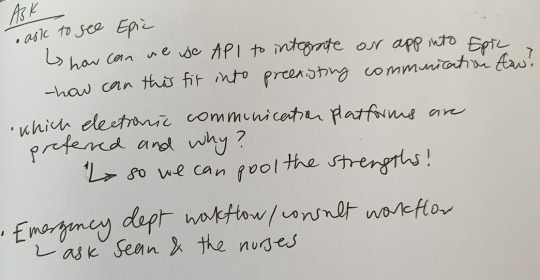 ASK
• ask to see Epic
↳ how can we use API to integrate our app into Epic
- how can this fit into preexisting communication flow?
• which electronic communication platforms are
preferred and why?
↳ so we can pool the strengths!
• Emergency dept workflow/consult workflow
↳ ask Sean & the nurses